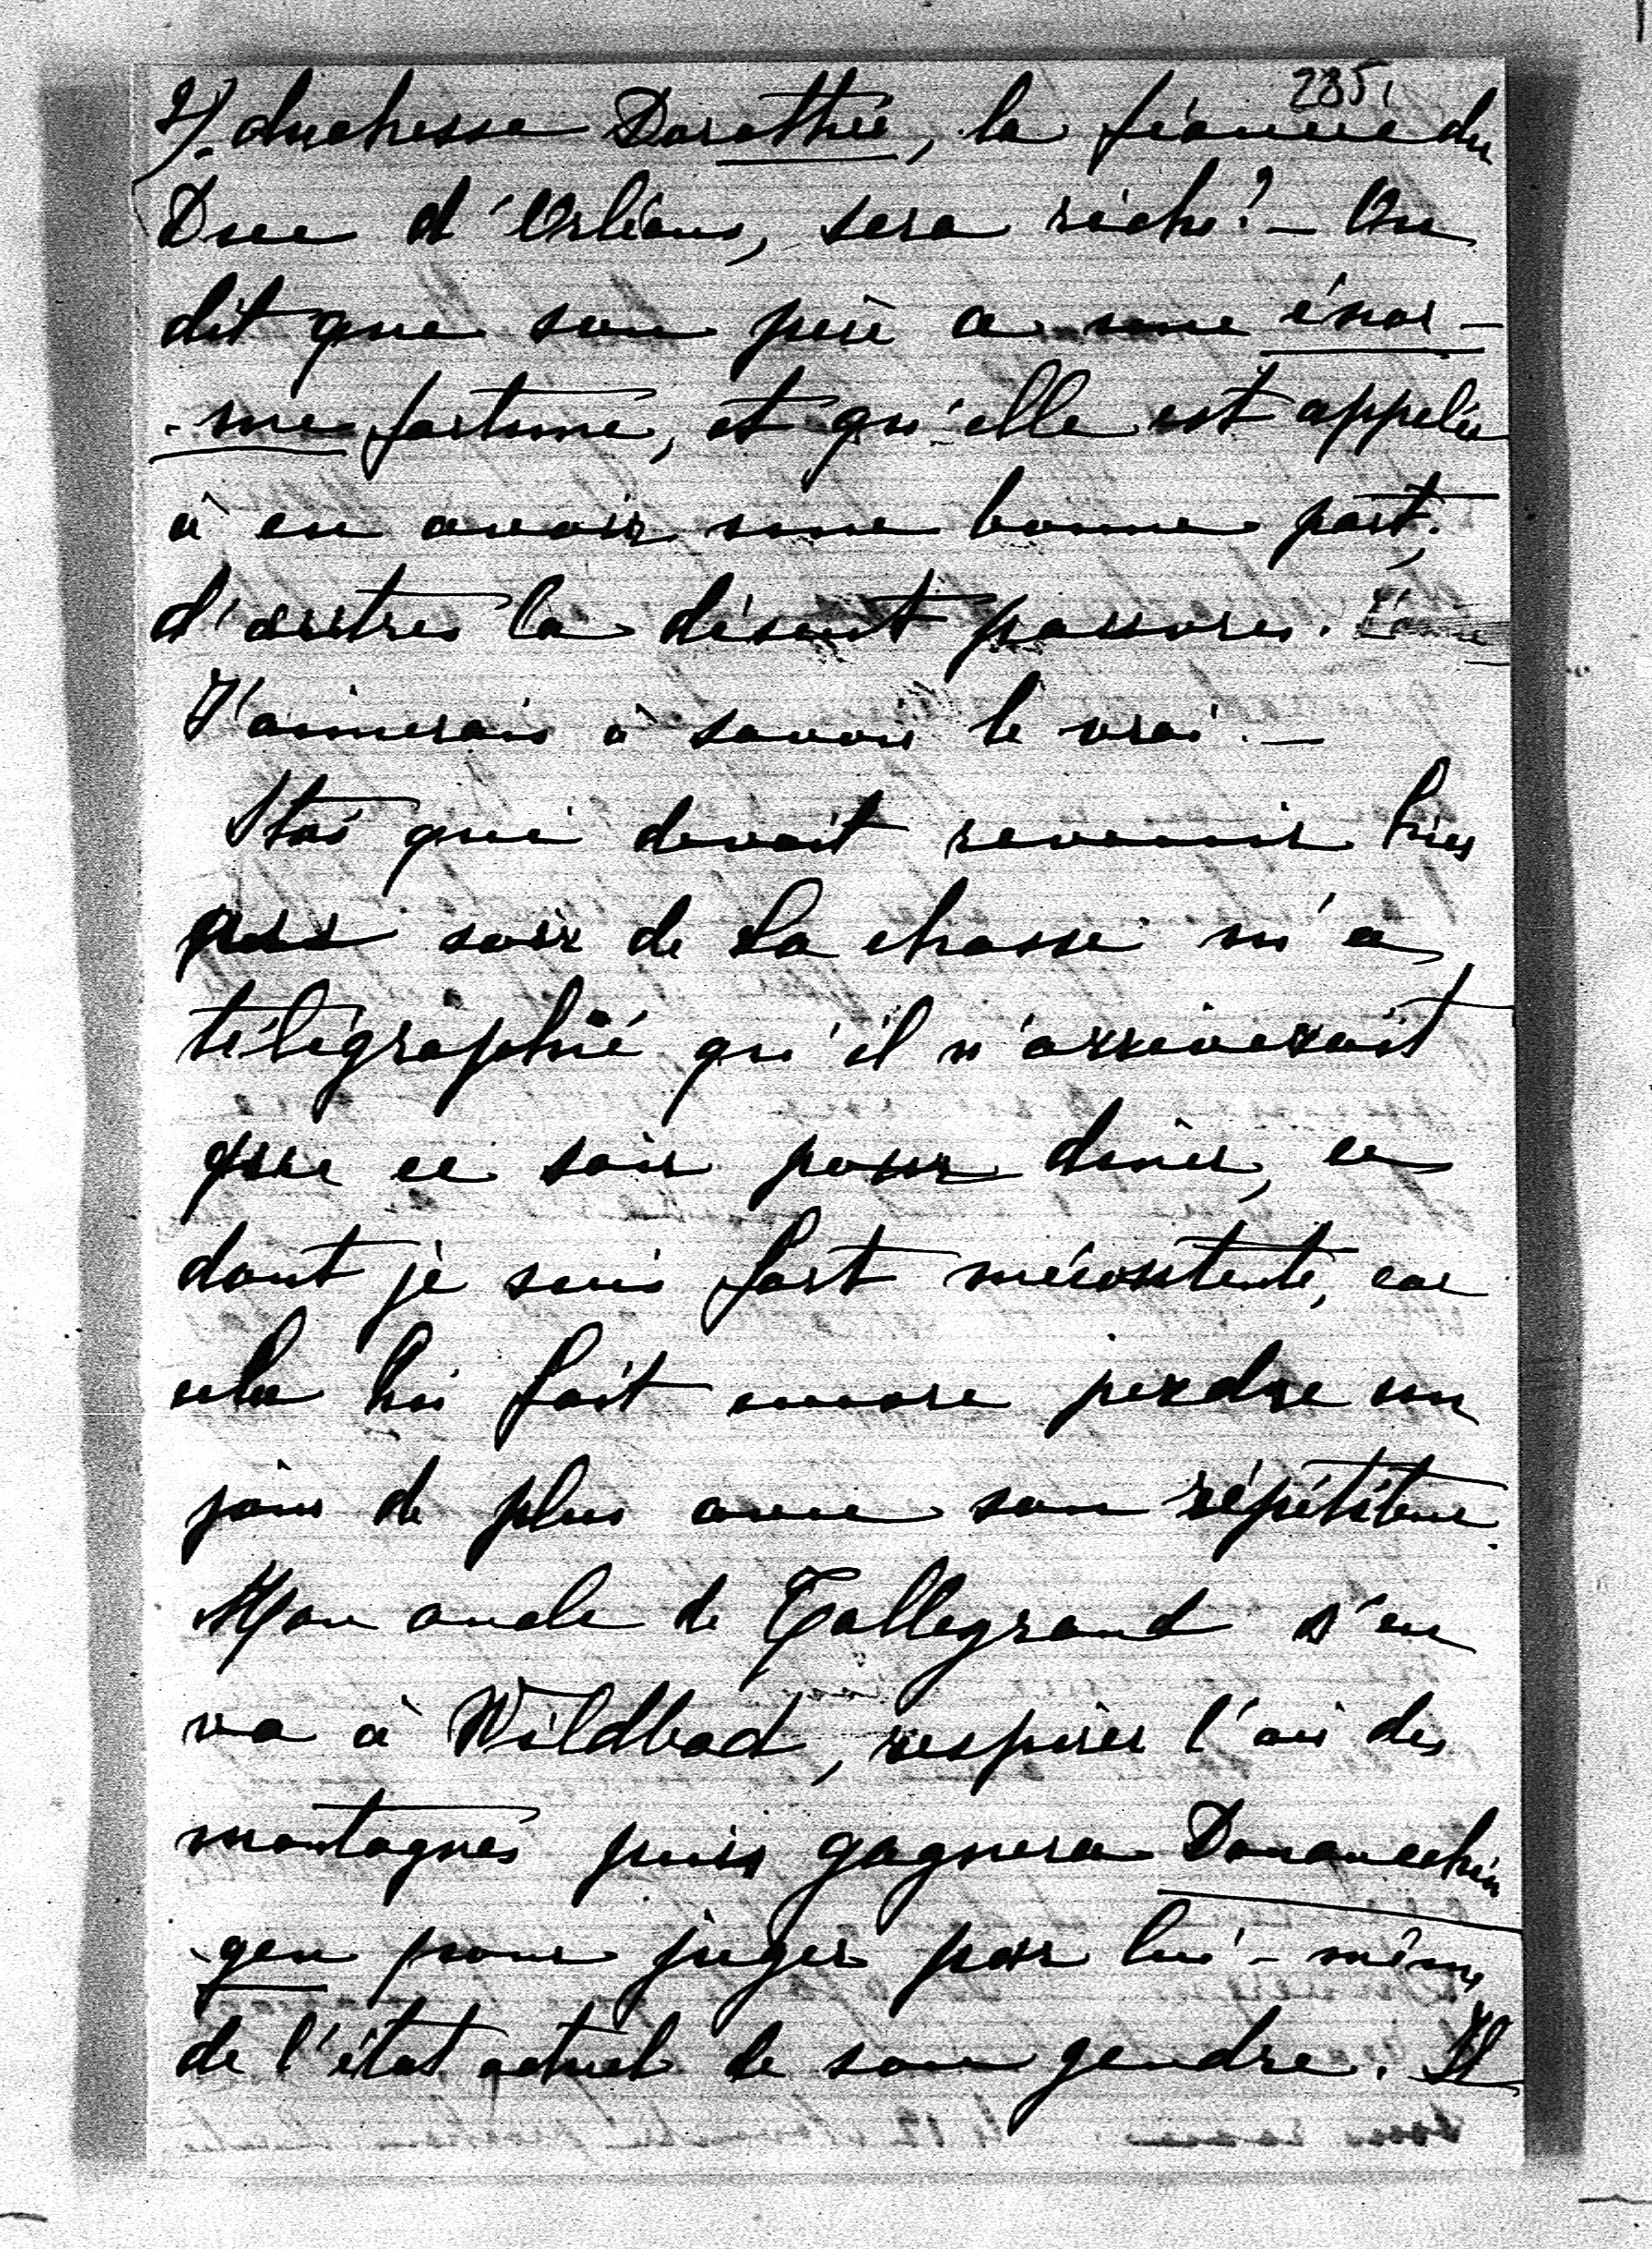 235.
2). duchesse Dorothée, la fiancée du
Duc d'Orléans, sera riche? — On
dit que son père a une énor-
-me fortune, et qu'elle est appelée
à en avoir une bonne part;
d'autres la disent pauvre.
J'aimerais à savoir le vrai. —
qui devait revenir hier
soir de la chasse m'a
télégraphié qu'il n'arriverait
que ce soir pour diner, ce
dont je suis fort mécontente, car
cela lui fait encore perdre un
jour de plus avec son répétiteur.
Mon oncle de Talleyrand s'en
va à Wildbad, respirer l'air des
montagnes puis gagnera Donaueschin
gen pour juger par lui-même
de l'état actuel de son gendre. Il